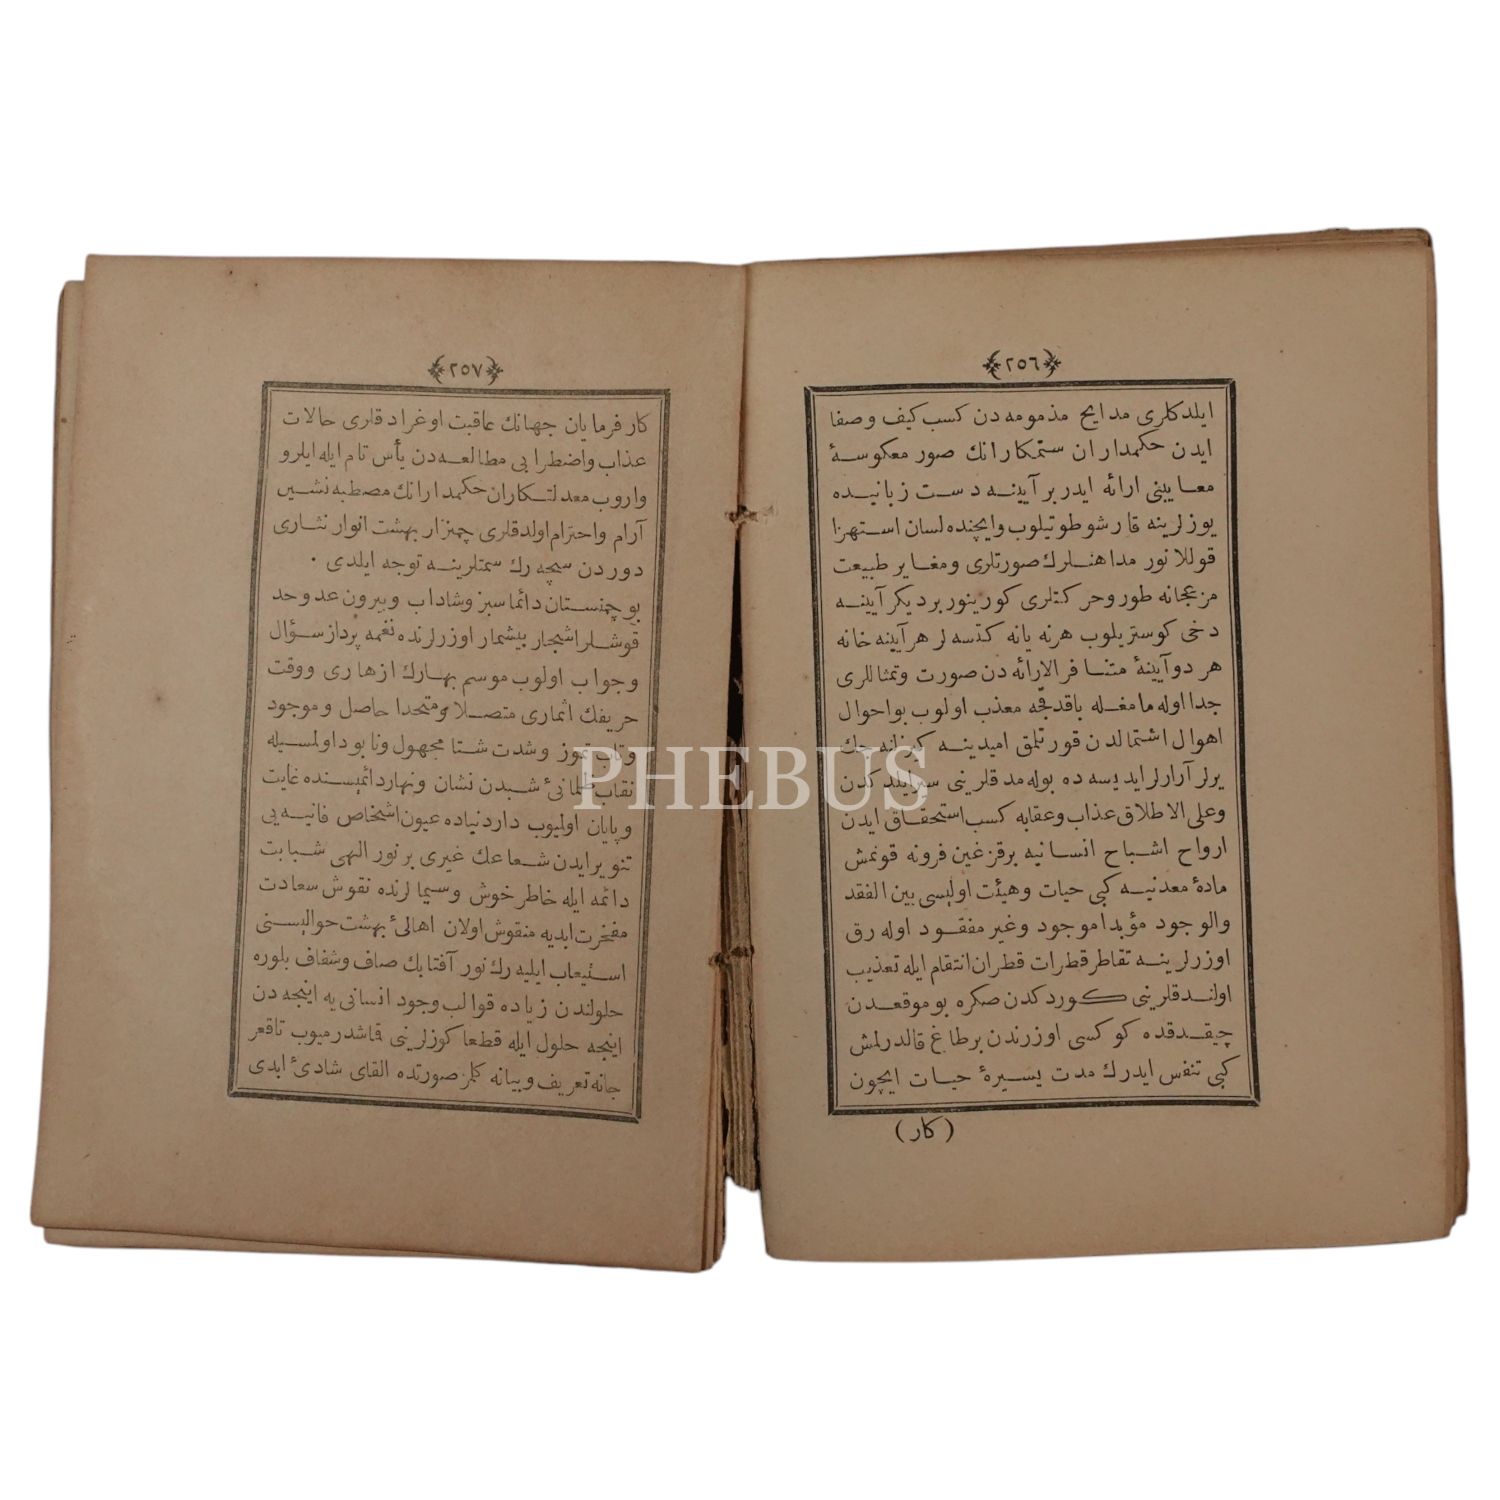 ﴿٢٥٦﴾
ايلدكلرى مدايح مذمومه دن كسب كيف وصفا
ايدن حكمداران ستمكارانك صور معكوسهٔ
معايبنى ارائه ايدر بر آيينه دست زبانيده
يوزلرينه قارشو طوتيلوب وايچنده لسان استهزا
قوللانور مداهنلرك صورتلرى ومغاير طبيعت
مزعجانه طور وحركتلرى كورينور برديكر آيينه
دخى كوستريلوب هرنه يانه كتسه لر هر آيينه خانه
هر دو آيينهٔ متنافر الارائه دن صورت وتمثاللرى
جدا اوله مامغله باقدقجه معذب اولوب بو احوال
اهوال اشتمالدن قورتلمق اميدينه كيزلنه جك
يرلر آرارلر ايديسه ده بوله مدقلرينى سير ايلدكدن
وعلى الاطلاق عذاب وعقابه كسب استحقاق ايدن
ارواح اشباح انسانيه برقزغين فرونه قونمش
مادهٔ معدنيه كبى حيات وهيئت اوليسى بين الفقد
والوجود مؤبدا موجود وغير مفقود اوله رق
اوزرلرينه تقاطر قطرات قطران انتقام ايله تعذيب
اولندقلرينى كوردكدن صكره بو موقعدن
چيقدقده كوكسى اوزرندن بر طاغ قالدرلمش
كبى تنفس ايدرك مدت يسيرهٔ حيات ايچون
(كار)
﴿٢٥٧﴾
كار فرمايان جهانك عاقبت اوغرادقلرى حالات
عذاب واضطرابى مطالعه دن يأس تام ايله ايلرو
واروب معدلتكاران حكمدارانك مصطبه نشين
آرام واحترام اولدقلرى چمنزار بهشت انوار نثارى
دوردن سچه رك سمتلرينه توجه ايلدى ٠
بو چمنستان دائما سبز وشاداب وبيرون عد وحد
قوشلر اشجار بيشمار اوزرلرنده نغمه پرداز سؤال
وجواب اولوب موسم بهارك ازهارى ووقت
خريفك اثمارى متصلا ومتحدا حاصل وموجود
وتاب تموز وشدت شتا مجهول ونابود اولمسيله
نقاب ظلمانئ شبدن نشان ونهار دائميسنده غايت
وپايان اوليوب داردنياده عيون اشخاص فانيه يى
تنوير ايدن شعاعك غيرى بر نور الهى شبابت
دائمه ايله خاطر خوش وسيمالرنده نقوش سعادت
مفخرت ابديه منقوش اولان اهالئ بهشت حواليسنى
استيعاب ايليه رك نور آفتابك صاف وشفاف بلوره
حلولندن زياده قوالب وجود انسانى يه اينجه دن
اينجه حلول ايله قطعا كوزلرينى قاشدرميوب تاقعر
جانه تعريف وبيانه كلمز صورتده القاى شادئ ابدى
PHEBUS